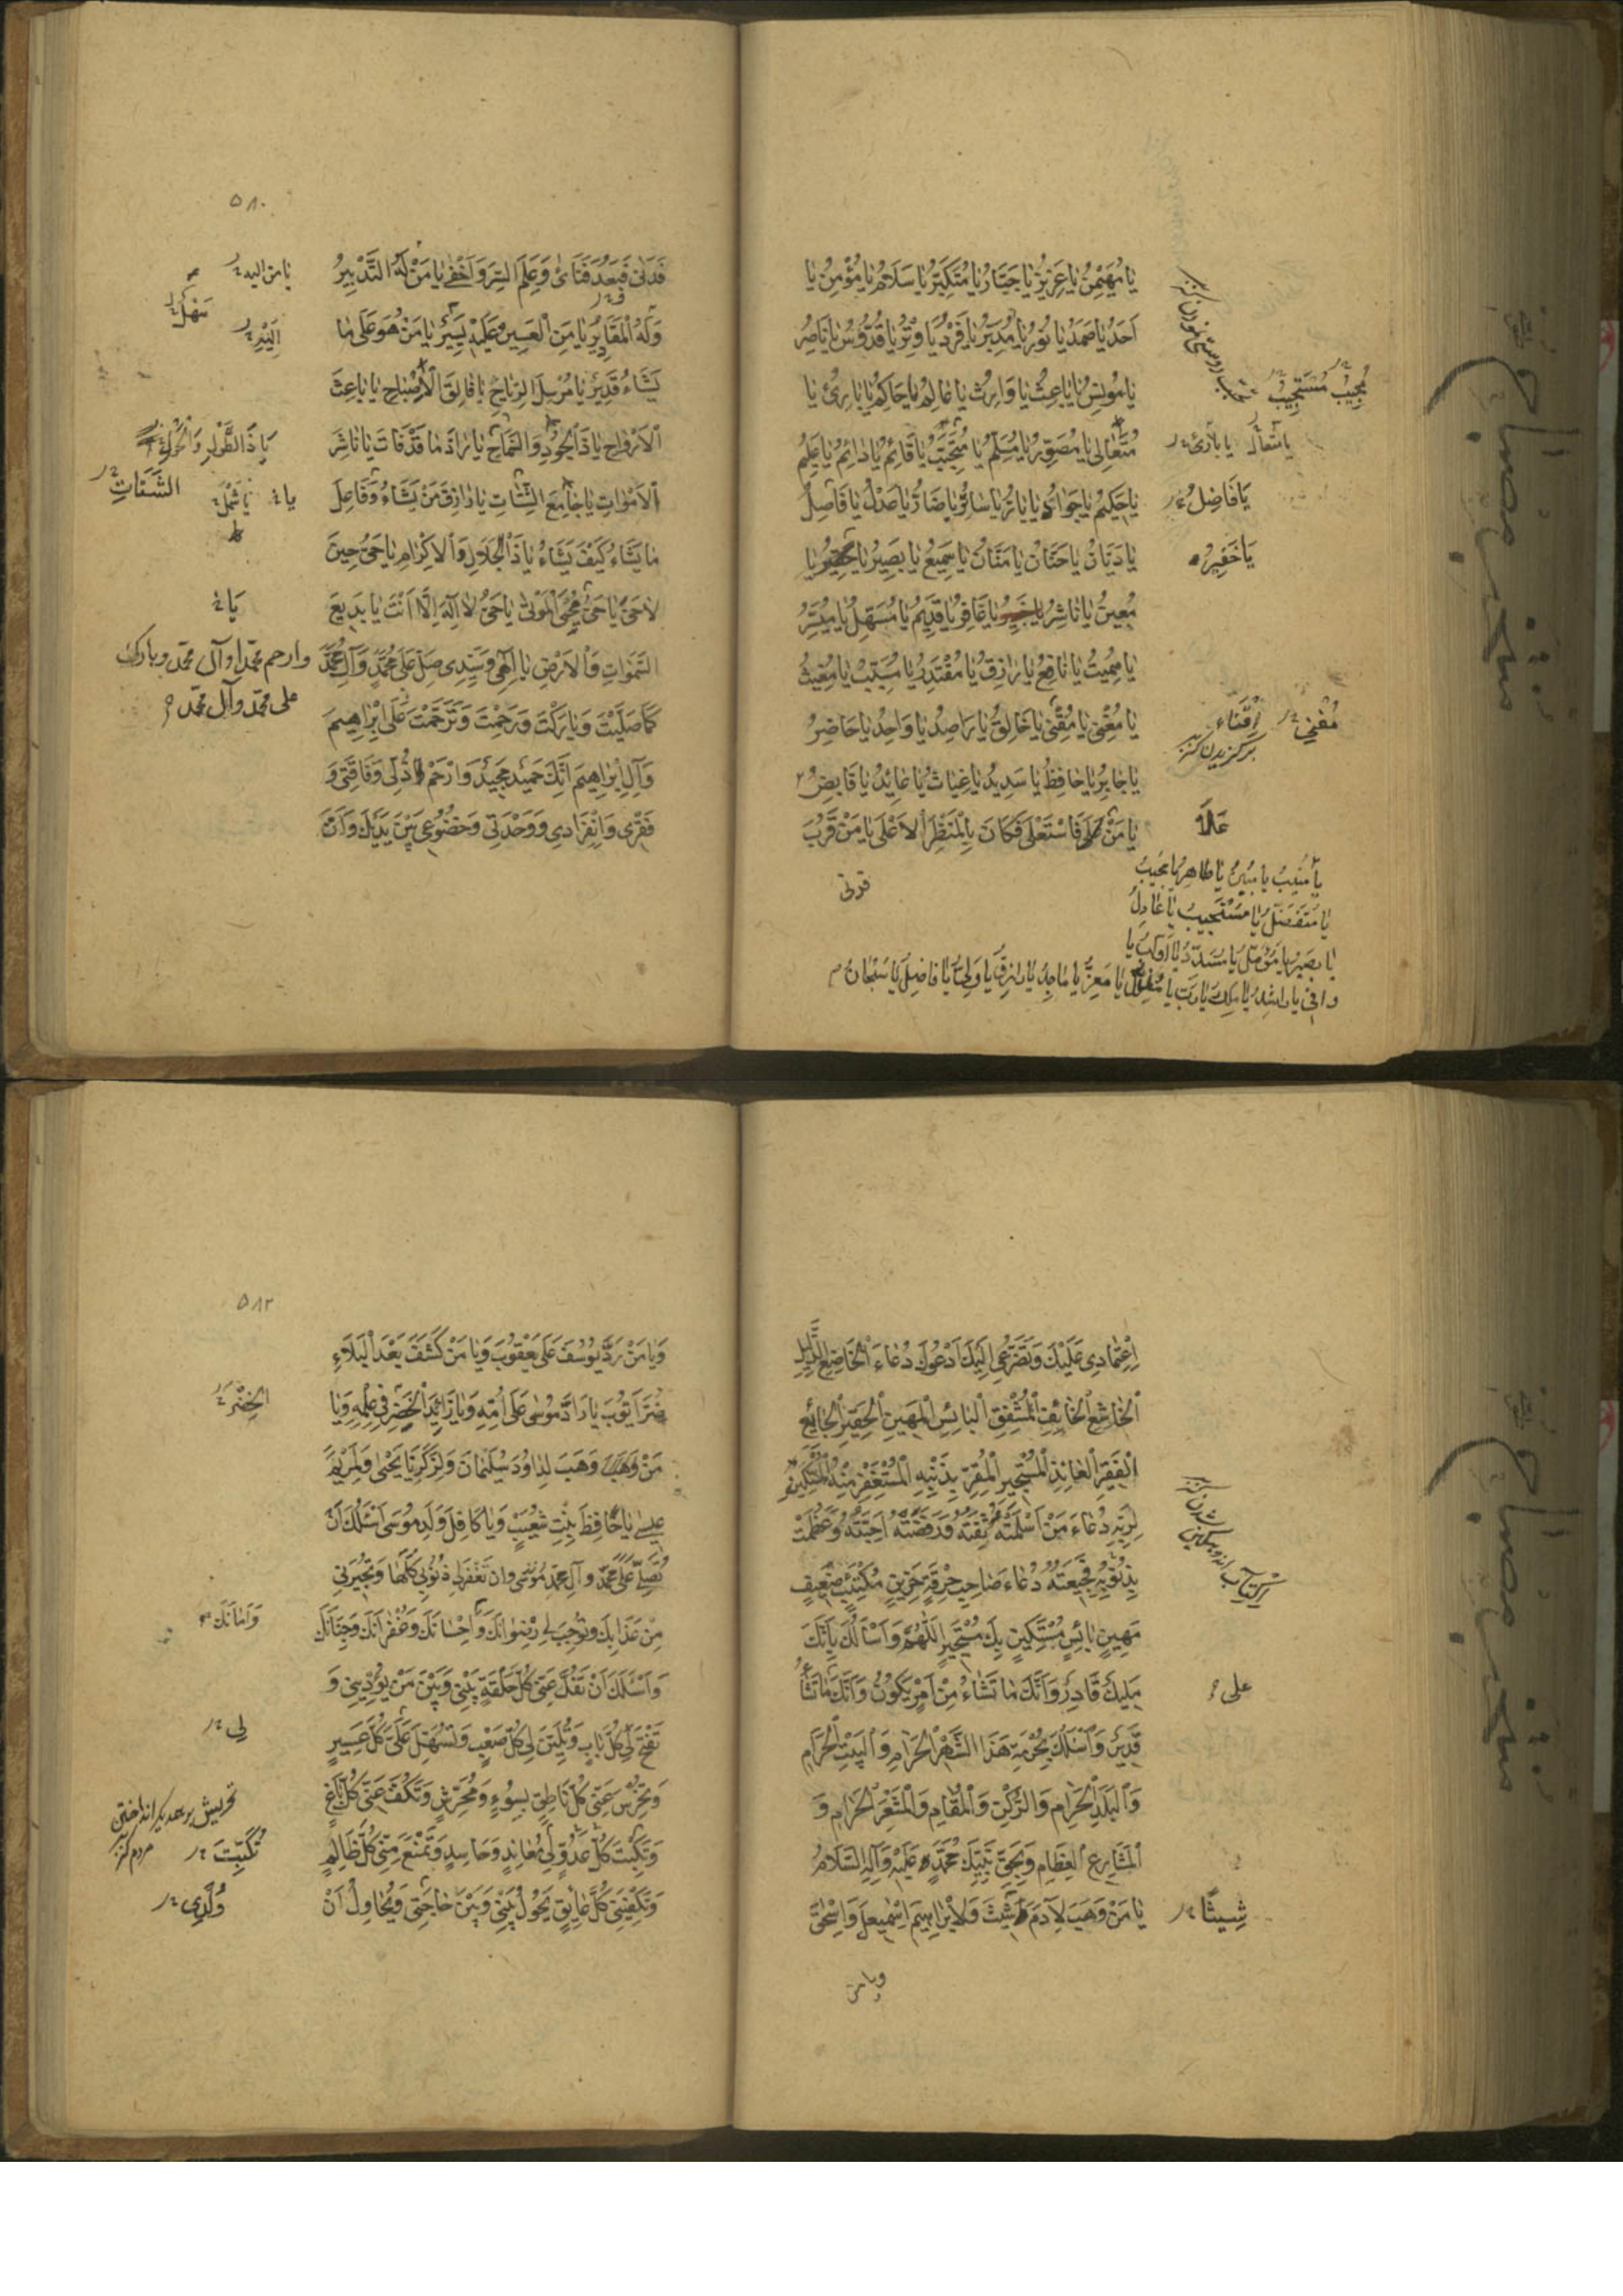 يا مُهَيْمِنُ يا عَزِيزُ يا جَبَّارُ يا مُتَكَبِّرُ يا سَلامُ يا مُؤْمِنُ يا
اَحَدُ يا صَمَدُ يا نُورُ يا مُدَبِّرُ يا فَرْدُ يا وِتْرُ يا قُدُّوسُ يا ناصِرُ
يا مُونِسُ يا باعِثُ يا وارِثُ يا عالِمُ يا حاكِمُ يا بارِئُ يا
مُتَعالِی يا مُصَوِّرُ يا مُسَلِّمُ يا مُتَحَبِّبُ يا قائِمُ يا دائِمُ يا عَلِيمُ
يا حَكِيمُ يا جَوادُ يا بارُّ يا سارُّ يا ضارُّ يا عَدْلُ يا فاصِلُ
يا دَيّانُ يا حَنّانُ يا مَنّانُ يا سَمِيعُ يا بَصِيرُ يا يا
مُعِينُ يا ناشِرُ يا غافِرُ يا قَدِيمُ يا مُسَهِّلُ يا مُيَسِّرُ
يا مُمِيتُ يا نافِعُ يا رازِقُ يا مُقْتَدِرُ يا مُسَبِّبُ يا مُغِيثُ
يا مُغْنِی يا مُقْنِی يا خالِقُ يا راصِدُ يا واحِدُ يا حاضِرُ
يا جابِرُ يا حافِظُ يا سَدِيدُ يا غِياثُ يا عائِدُ يا قابِضُ
يا مَنْ فَاسْتَعْلى فَكانَ بِالْمَنْظَرِ الْاَعْلى يا مَنْ قَرُبَ
مُجِيبُ مُسْتَجِيبُ
يا مُتعال يا بارئ
يا فاضِلُ
يا خَفِيرُ
مُقنِي اِقناء
برگزیدن
عَلا
يا مُنيبُ يا مُبينُ يا طاهِرُ يا مُجيبُ
يا مُتَفَضِّلُ يا مُسْتَجيبُ يا عادِلُ
يا بَصيرُ يا مُؤَمَّلُ يا مُسَدِّدُ يا اَوّابُ يا
وافی يا راشِدُ يا مَلِكُ يا رَبِّ يا يا مُعِزُّ يا ماجِدُ يا رازِقُ يا وَلِیُّ يا فاضِلُ يا سُبْحانُ
فدنی
٥٨٠
فَدَنى فَبَعُدَ فَنَأى وَعَلِمَ السِّرَّ وَاَخْفى يا مَنْ لَهُ التَّدْبِيرُ
وَلَهُ الْمَقادِيرُ يا مَنِ الْعَسِيرُ عَلَيْهِ يَسِيرٌ يا مَنْ هُوَ عَلى ما
يَشاءُ قَدِيرٌ يا مُرْسِلَ الرِّياحِ يا فالِقَ الْاِصْباحِ يا باعِثَ
الْاَرْواحِ يا ذَا الْجُودِ وَالسَّماحِ يا رادَّ ما قَدْ فاتَ يا ناشِرَ
الْاَمْواتِ يا جامِعَ الشَّتاتِ يا رازِقَ مَنْ يَشاءُ وَفاعِلَ
ما يَشاءُ كَيْفَ يَشاءُ يا ذَا الْجَلالِ وَالْاِكْرامِ يا حَیُّ حِينَ
لا حَیَّ يا حَیُّ مُحْیِیَ الْمَوْتى يا حَیُّ لا اِلهَ اِلّا اَنْتَ يا بَدِيعَ
السَّمواتِ وَالْاَرْضِ يا اِلهِی وَسَيِّدِی صَلِّ عَلى مُحَمَّدٍ وَآلِ مُحَمَّدٍ
كَما صَلَّيْتَ وَبارَكْتَ وَرَحِمْتَ وَتَرَحَّمْتَ عَلى اِبْراهِيمَ
وَآلِ اِبْراهِيمَ اِنَّكَ حَمِيدٌ مَجِيدٌ وَارْحَمْ ذُلِّی وَفاقَتِی وَ
فَقْرِی وَانْفِرادِی وَوَحْدَتِی وَخُضُوعِی بَيْنَ يَدَيْكَ وَ
يا من اليه
سَهْلٌ
يا ذا الطَّوْلِ
الشَّتاتِ
وارحم محمّدا وآل محمّد وبارك
على محمّد وآل محمّد
اِعْتِمادِی عَلَيْكَ وَتَضَرُّعِی اِلَيْكَ اَدْعُوكَ دُعاءَ الْخاضِعِ الذَّلِيلِ
الْخاشِعِ الْخائِفِ الْمُشْفِقِ الْبائِسِ الْمَهِينِ الْحَقِيرِ الْجائِعِ
الْفَقِيرِ الْعائِذِ الْمُسْتَجِيرِ الْمُقِرِّ بِذَنْبِهِ الْمُسْتَغْفِرِ مِنْهُ الْمُسْتَكِينِ
لِرَبِّهِ دُعاءَ مَنْ اَسْلَمَتْهُ ثِقَتُهُ وَرَفَضَتْهُ اَحِبَّتُهُ وَعَظُمَتْ
فَجِيعَتُهُ دُعاءَ صاحِبِ حُرَقٍ حَزِينٍ مُكْتَئِبٍ ضَعِيفٍ
مَهِينٍ بائِسٍ مُسْتَكِينٍ بِكَ مُسْتَجِيرٍ اَللّهُمَّ وَاَسْأَلُكَ بِاَنَّكَ
مَلِيكٌ قادِرٌ وَاَنَّكَ ما تَشاءُ مِنْ اَمْرٍ يَكُونُ وَاَنَّكَ ما تَشاءُ
قَدِيرٌ وَاَسْئَلُكَ بِحُرْمَةِ هَذَا الشَّهْرِ الْحَرامِ وَالْبَيْتِ الْحَرامِ
وَالْبَلَدِ الْحَرامِ وَالرُّكْنِ وَالْمَقامِ وَالْمَشْعَرِ الْحَرامِ وَ
الْمَشاعِرِ الْعِظامِ وَبِحَقِّ نَبِيِّكَ مُحَمَّدٍ عَلَيْهِ وَآلِهِ السَّلامُ
يا مَنْ وَهَبَ لِآدَمَ شِيثَ وَلِاِبْراهِيمَ اِسْمعِيلَ وَاِسْحقَ
على
شِيثًا
ويا من
٥٨٢
وَيا مَنْ رَدَّ يُوسُفَ عَلى يَعْقُوبَ وَيا مَنْ كَشَفَ بَعْدَ الْبَلاءِ
ضُرَّ اَيُّوبَ يا رادَّ مُوسى عَلى اُمِّهِ وَيا زائِدَ الْخِضْرِ فِی عِلْمِهِ وَيا
مَنْ وَهَبَ لِداوُدَ سُلَيْمانَ وَلِزَكَرِيّا يَحْيى وَلِمَرْيَمَ
عِيسى يا حافِظَ بِنْتِ شُعَيْبٍ وَيا كافِلَ وَلَدِ مُوسى اَسْئَلُكَ اَنْ
تُصَلِّیَ عَلى مُحَمَّدٍ وآلِ مُحَمَّدٍ وان تَغْفِرَ لِی ذُنُوبِی كُلَّها وَتُجِيرَنِی
مِنْ عَذابِكَ وَتُوجِبَ لِی رِضْوانَكَ وَاِحْسانَكَ وَغُفْرانَكَ وَجِنانَكَ
وَاَسْئَلُكَ اَنْ تَفُكَّ عَنِّی كُلَّ حَلْقَةٍ بَيْنِی وَبَيْنَ مَنْ يُؤْذِينِی وَ
تَفْتَحَ لِی كُلَّ بابٍ وَتُلَيِّنَ لِی كُلَّ صَعْبٍ وَتُسَهِّلَ عَلَیَّ كُلَّ عَسِيرٍ
وَتُخْرِسَ عَنِّی كُلَّ ناطِقٍ بِسُوءٍ وَمُحَرِّشٍ وَتَكُفَّ عَنِّی كُلَّ باغٍ
وَتَكْبِتَ كُلَّ عَدُوٍّ لِی مُعانِدٍ وَحاسِدٍ وَتَمْنَعَ مِنِّی كُلَّ ظالِمٍ
وَتَكْفِيَنِی كُلَّ عائِقٍ يَحُولُ بَيْنِی وَبَيْنَ حاجَتِی وَيُحاوِلُ اَنْ
الخِضْرَ
وَاَمانَكَ
لی
تُكَبِّتَ